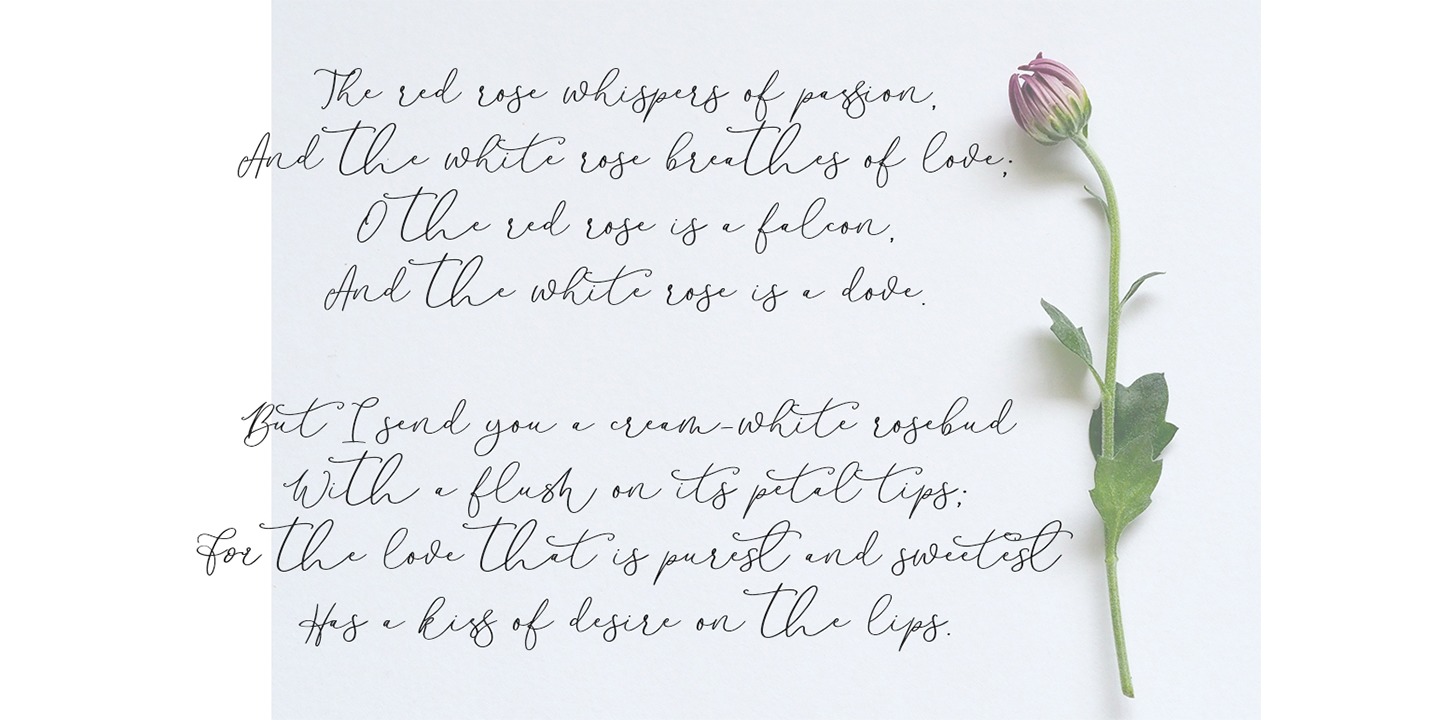 The red rose whispers of passion,
And the white rose breathes of love;
O the red rose is a falcon,
And the white rose is a dove.
But I send you a cream-white rosebud
With a flush on its petal tips;
For the love that is purest and sweetest
Has a kiss of desire on the lips.